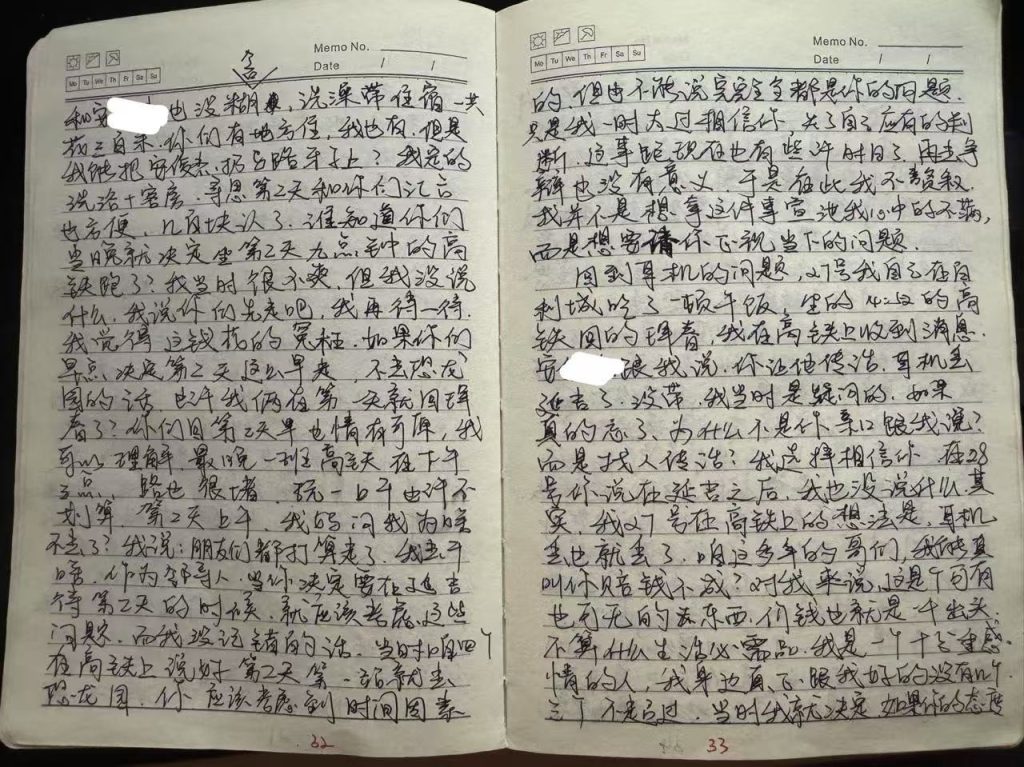 Memo No.
Mo Tu We Th Fr Sa Su
Date / /
和安 也没糊, 洗澡带住宿一共
花三百来. 你们有地方住, 我也有. 但是
我能把安俊杰扔马路牙子上? 我花的
洗浴+客房. 寻思第2天和你们汇合
也方便, 几百块认了. 谁知道你们
当晚就决定坐第2天九点钟的高
铁跑了? 我当时很不爽, 但我没说
什么. 我说你们先走吧, 我再待一待.
我觉得这钱花的冤枉. 如果你们
早点决定第2天这么早走, 不去恐龙
园的话, 我俩在第一天就回珲
春了? 你们回第2天早也情有可原, 我
可以理解. 最晚一班高铁在下午
三点, 路也很堵, 玩一上午也许不
划算. 第2天上午, 我妈问我为啥
不去了? 我说: 朋友们都打算走了. 我去干
啥. 作为领导人, 当你决定要在延吉
待第2天的时候, 就应该考虑这些
问题. 而我没记错的话. 当时咱四个
在高铁上说好第2天第一站就去
恐龙园. 你应该考虑到时间因素
32
Memo No.
Mo Tu We Th Fr Sa Su
Date / /
的. 但也不能说完完全全都是你的问题.
只是我一时太过相信你. 失了自己应有的判
断. 这事距现在也有些许时日了. 再去争
辩也没有意义. 于是在此我不赘叙.
我并不是想拿这件事宣泄我心中的不满,
而是想要请你正视当下的问题.
回到耳机的问题, 27号我自己在百
利城吃了一顿午饭, 坐的 的高
铁回的珲春, 我在高铁上收到消息.
安 跟我说. 你让他传话. 耳机丢
延吉了. 没带. 我当时是疑问的. 如果
真的忘了. 为什么不是你亲口跟我说?
而是找人传话? 我选择相信你. 在28
号你说在延吉之后, 我也没说什么. 其
实, 我27号在高铁上的想法是, 耳机
丢也就丢了. 咱这多年的哥们, 我能真
叫你赔钱不成? 对我来说, 这是个可有
也可无的东西. 价钱也就是一千出头.
不算什么生活必需品. 我是一个十分重感
情的人, 我身边真正跟我好的没有几个
三 不 过. 当时我就决定. 如果你的态度
33